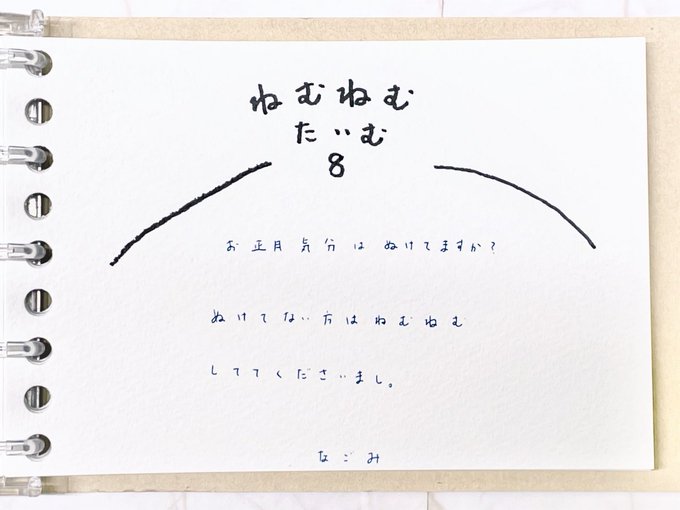 ねむねむ
たいむ
8
お正月気分はぬけてますか？
ぬけてない方はねむねむ
しててくださいまし。
なごみ